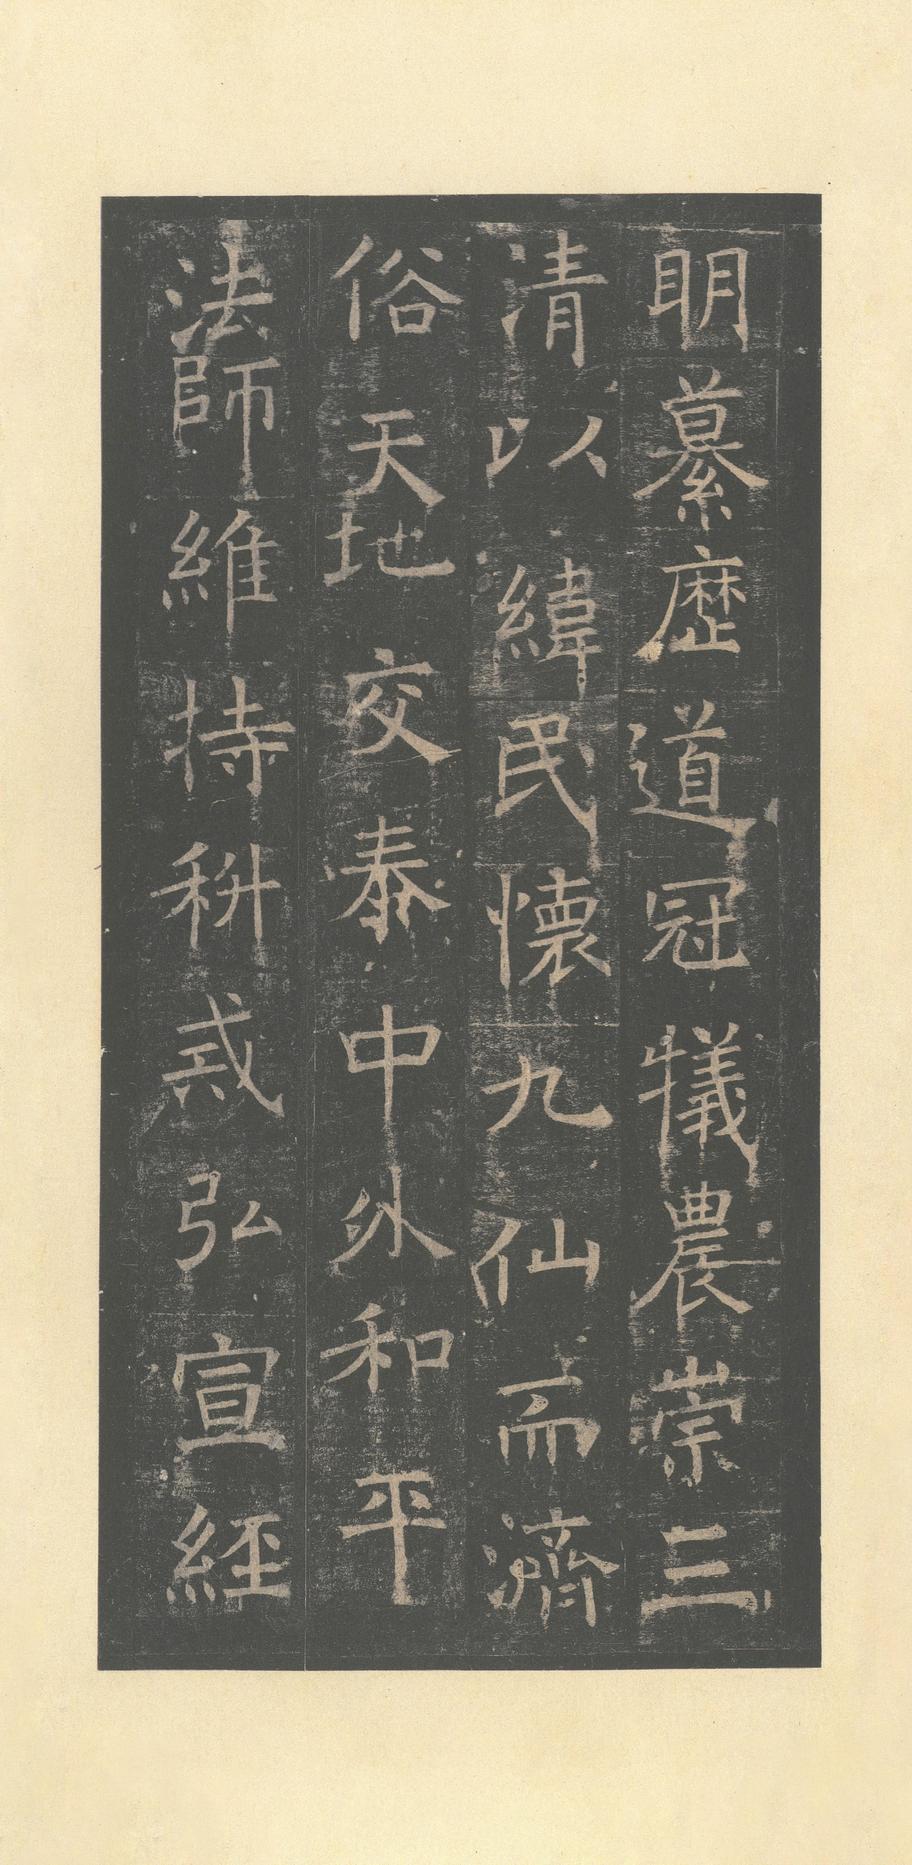 明纂歴道冠犧農崇三
清以緯民懷九仙而濟
俗天地交泰中外和平
法師維持科戒弘宣經